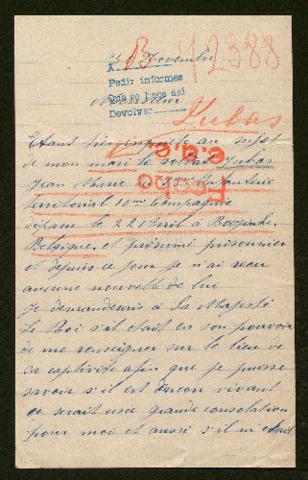 B 92388
Novembre
A
Pedir informes
Que se haga así
Devolver
Monsieur
Jubas
Etant très inquiète au sujet
de mon mari le soldat Jubas
Jean Marie
territorial 10me Compagnie
disparu le 22 Avril à
Belgique et présumé prisonnier
et depuis ce jour je n'ai reçu
aucune nouvelle de lui
Je demanderais à Sa Majesté
Le Roi s'il était en son pouvoir
de me renseigner sur le lieu de
sa captivité afin que je puisse
savoir s'il est encore vivant
ce serait une grande consolation
pour moi et aussi s'il n'était